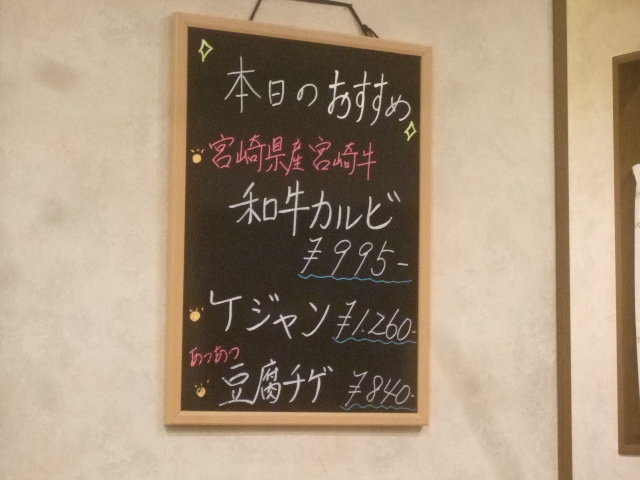 本日のおすすめ
宮崎県産宮崎牛
和牛カルビ
¥995-
ケジャン ¥1.260-
あつあつ
豆腐チゲ ¥840-